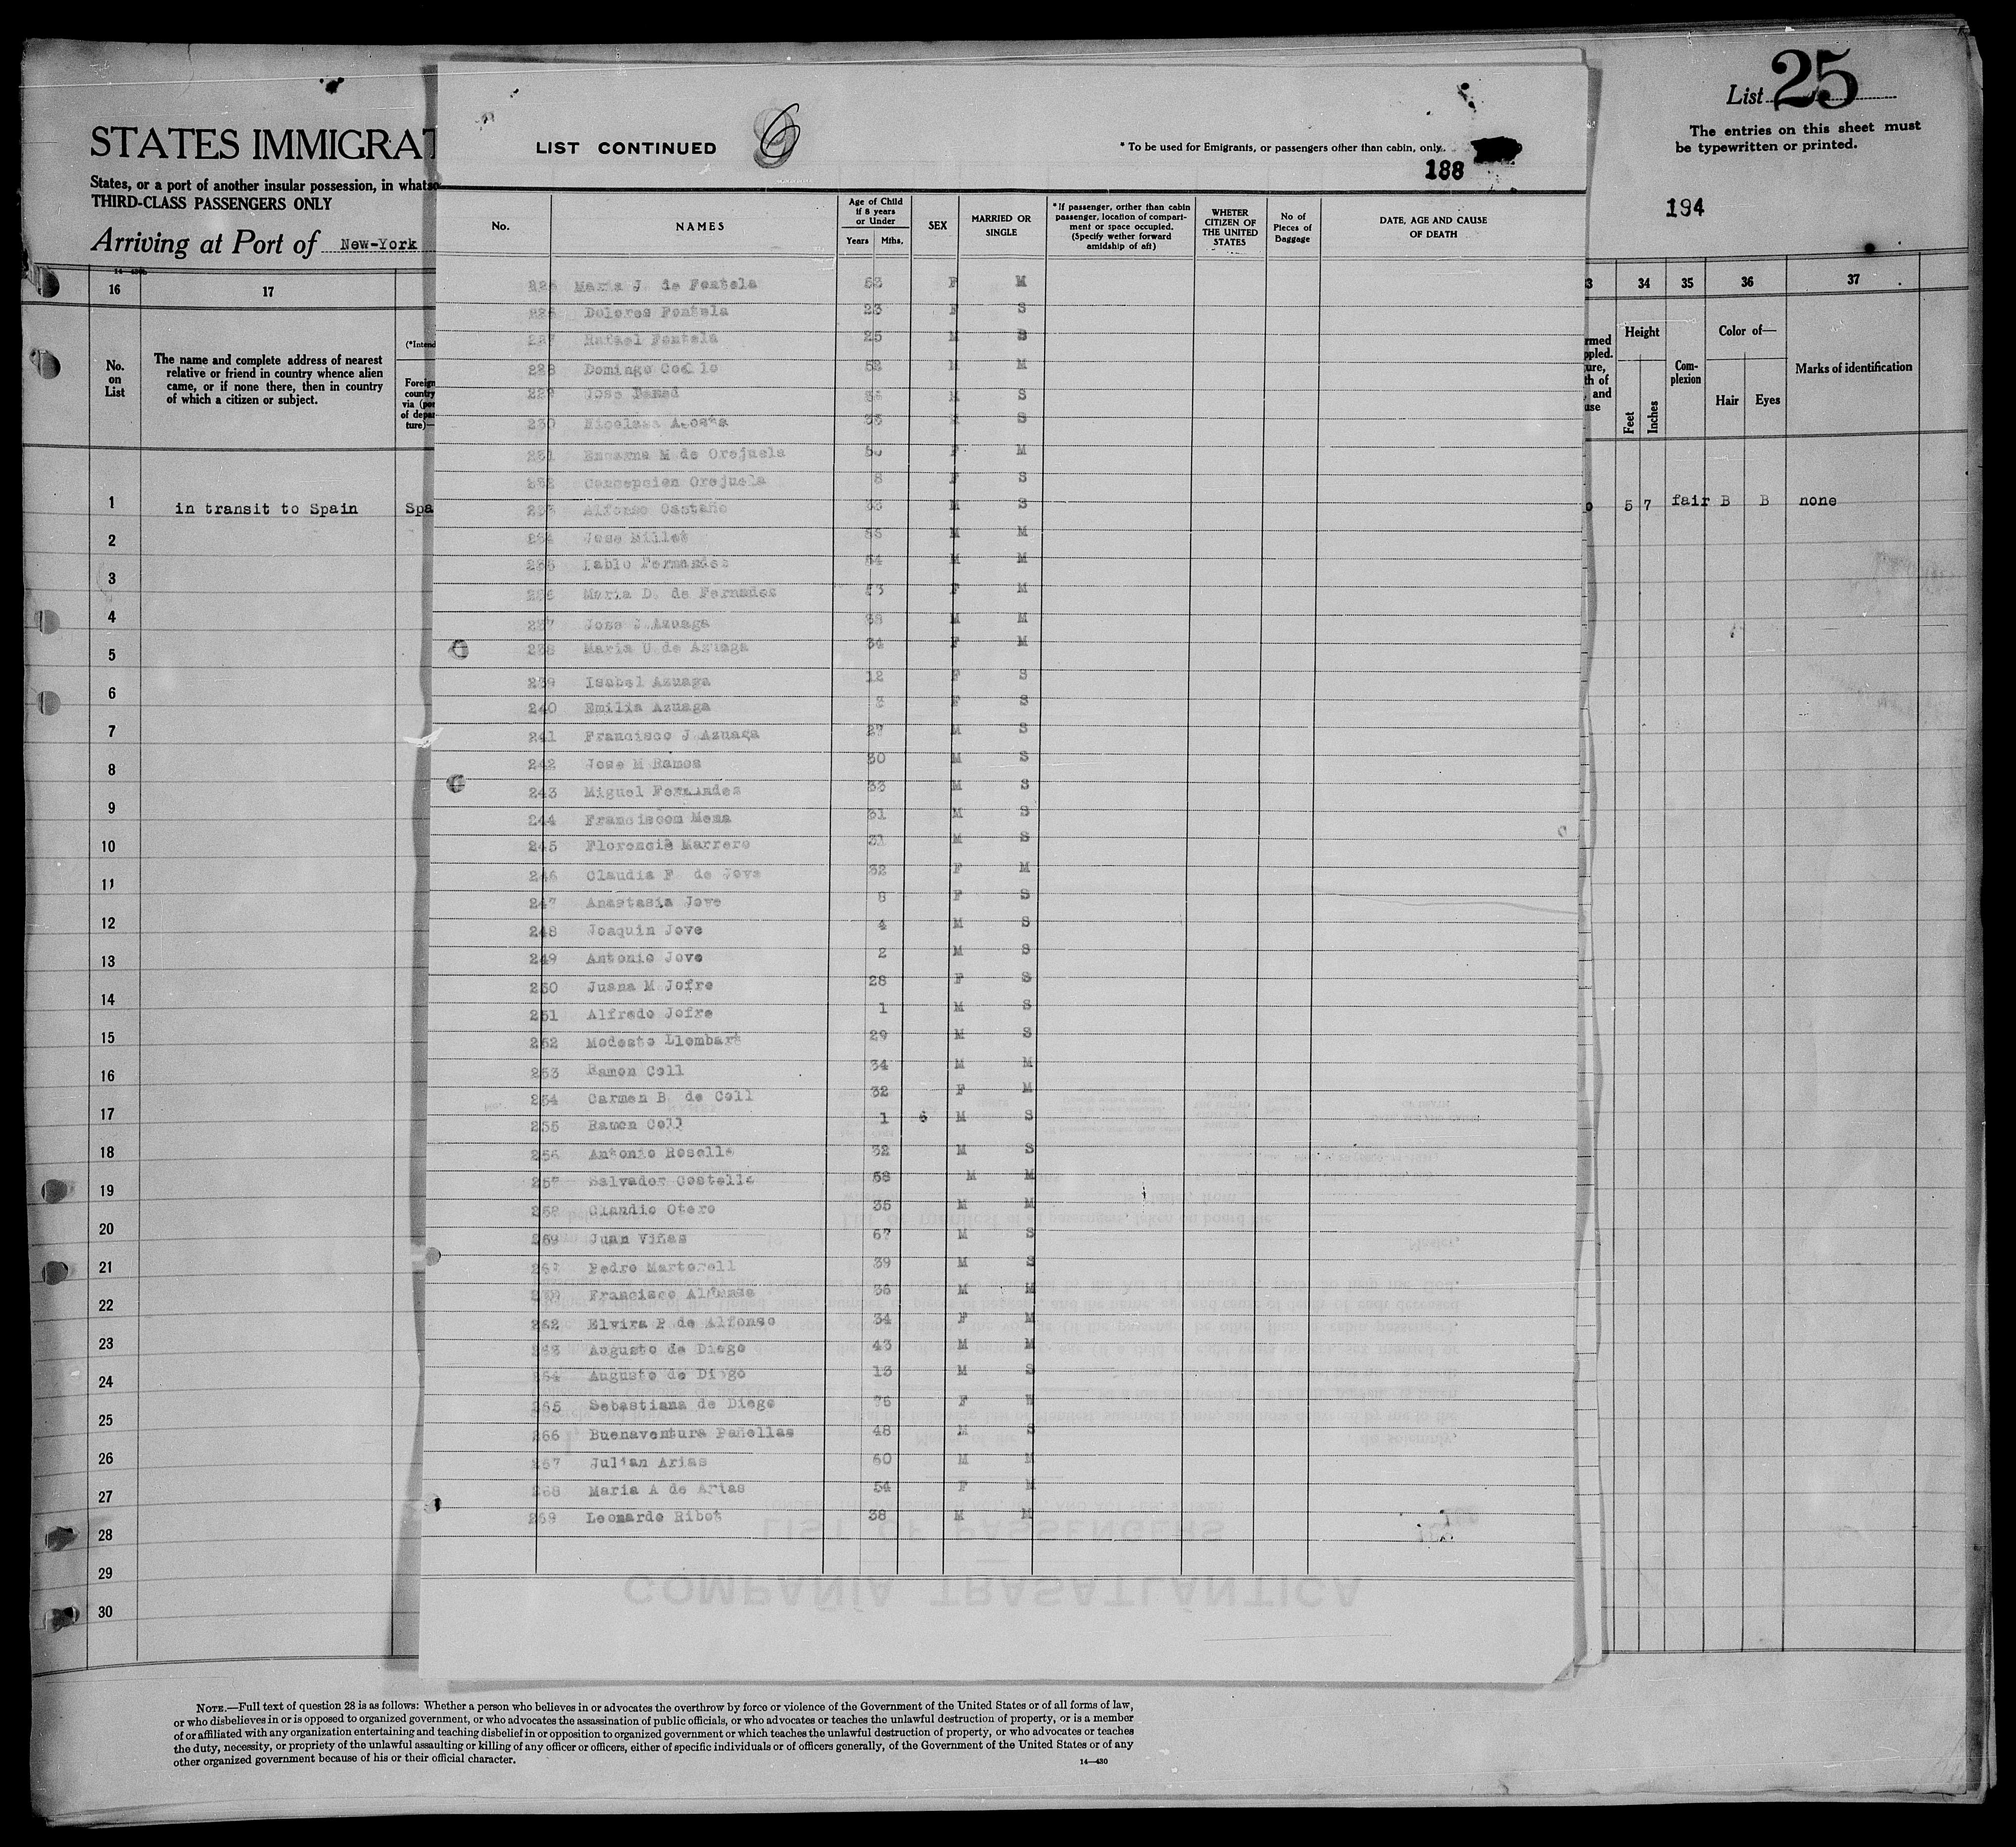 List 25
The entries on this sheet must
be typewritten or printed.
194
STATES IMMIGRAT
States, or a port of another insular possession, in whatso
THIRD-CLASS PASSENGERS ONLY
Arriving at Port of New-York
14-430b
16 17
No. on List
The name and complete address of nearest
relative or friend in country whence alien
came, or if none there, then in country
of which a citizen or subject.
(*Intend
Foreign
country
via (por
of depar-
ture)—
1 in transit to Spain Spa
2
3
4
5
6
7
8
9
10
11
12
13
14
15
16
17
18
19
20
21
22
23
24
25
26
27
28
29
30
LIST CONTINUED 6
* To be used for Emigrants, or passengers other than cabin, only.
188
No.
NAMES
Age of Child
if 8 years
or Under
Years Mths.
SEX
MARRIED OR
SINGLE
*If passenger, orither than cabin
passenger, location of compari-
ment or space occupied.
(Specify wether forward
amidship of aft)
WHETER
CITIZEN OF
THE UNITED
STATES
No of
Pieces of
Baggage
DATE, AGE AND CAUSE
OF DEATH
Maria J. de Fontela F M
Dolores Fontela 23 F S
Rafael Fontela 25 M S
228 Domingo M M
229 Jose M S
230 Acosta S
231 M de Orejuela F M
Concepcion Orejuela 8 F S
Alfonso Castaño M S
Jose Millet M M
Pablo Fernandez 54 M M
Maria D. de Fernadez F M
237 Jose J Azuaga 38 M M
238 Maria U de Azuaga 34 F M
239 Isabel Azuaga 12 F S
240 Emilia Azuaga F S
241 Francisco J Azuaga 27 M S
242 Jose M Ramos 30 M S
243 Miguel Fernandez M S
244 Mena 31 M S
245 Marrero 31 M S
246 Claudia F de Jove 32 F M
247 Anastasia Jove 8 F S
248 Joaquin Jove 4 M S
249 Antonio Jove 2 M S
250 Juana M Jofre 28 F S
251 Alfredo Jofre 1 M S
252 Modesto Llombart 29 M S
253 Ramon Coll 34 M M
254 Carmen B. de Coll 32 F M
255 Ramon Coll 1 6 M S
256 Antonio Rosello 32 M S
257 Salvador Costella 58 M M
Claudio Otero 35 M M
259 Juan Viñas 67 M S
Pedro Martorell 39 M S
Francisco Alfonso 36 M M
262 Elvira P de Alfonso 34 F M
263 Augusto de Diego 43 M M
264 Augusto de Diego 13 M S
265 Sebastiana de Diego 76 F
266 Buenaventura Pañellas 48 M S
267 Julian Arias 60 M M
268 Maria A de Arias 54 F M
269 Leonardo Ribot 38 M M
LIST OF PASSENGERS
COMPAÑÍA TRASATLÁNTICA
3 34 35 36 37
rmed
ppled.
ure,
th of
, and
use
Height
Feet
Inches
Com-
plexion
Color of—
Hair
Eyes
Marks of identification
o 5 7 fair B B none
NOTE.—Full text of question 28 is as follows: Whether a person who believes in or advocates the overthrow by force or violence of the Government of the United States or of all forms of law,
or who disbelieves in or is opposed to organized government, or who advocates the assassination of public officials, or who advocates or teaches the unlawful destruction of property, or is a member
of or affiliated with any organization entertaining and teaching disbelief in or opposition to organized government or which teaches the unlawful destruction of property, or who advocates or teaches
the duty, necessity, or propriety of the unlawful assaulting or killing of any officer or officers, either of specific individuals or of officers generally, of the Government of the United States or of any
other organized government because of his or their official character.
14—430